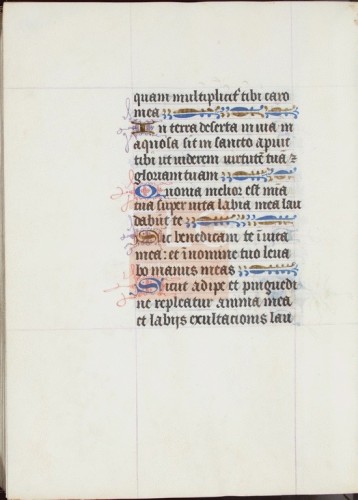 quam multiplicit' tibi caro
mea
In terra deserta inuia in
aquosa sic in sancto aparui
tibi ut uiderem uirtutē tuā ⁊
gloriam tuam
Quonia melior est mia
tua super uitas labia mea lau
dabūt te
Sic benedicam te ī uita
mea: et in nomine tuo leua
bo manus meas
Sicut adipe et pinguedi
ne repleatur anima mea
et labijs exultacionis lau